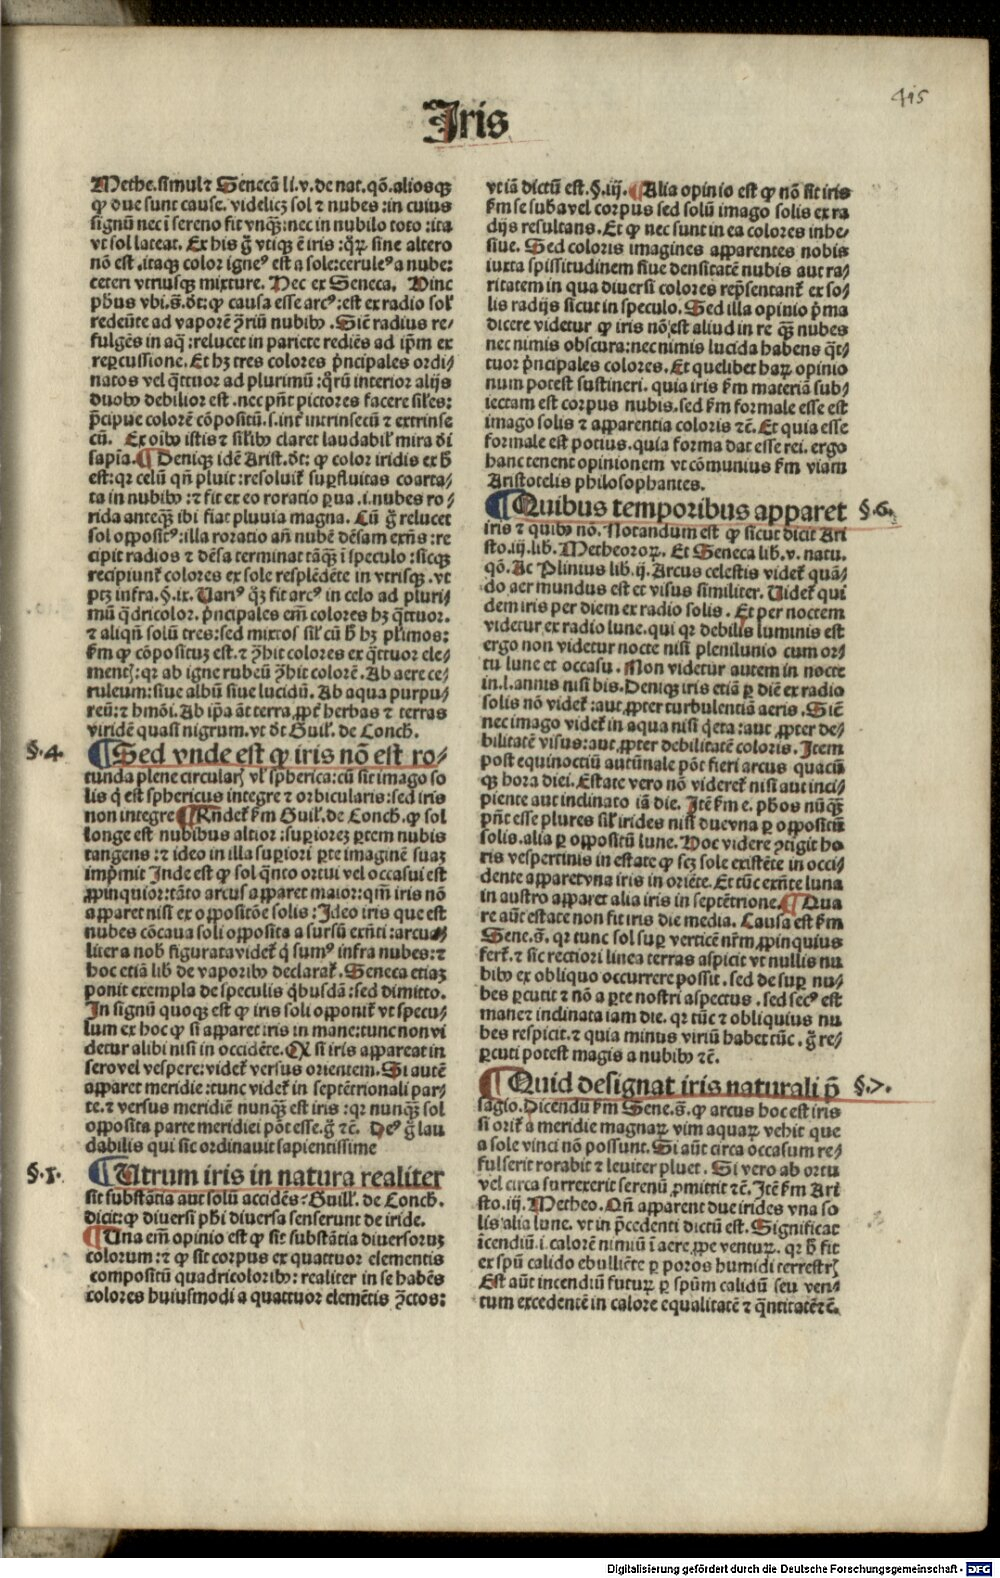 415
Iris
Methe. simul ⁊ Senecā li. v. de nat. qō. aliosqꝫ
ꝙ due sunt cause. videlicꝫ sol ⁊ nubes : in cuius
signū nec ī sereno fit vnqꝫ̄ : nec in nubilo toto : ita
vt sol lateat. Ex his gͦ vtiqꝫ ē iris : qꝛ sine altero
nō est. itaqꝫ color igneꝰ est a sole : ceruleꝰ a nube :
ceteri vtriusqꝫ mixture. Hec ex Seneca. Hinc
phūs vbi. s̄. dt̄ : ꝙ causa esse arcꝰ : est ex radio sol̕
redeūte ad vaporē ꝯ̄riū nubiū. Sic̄ radius re/
fulgēs in aq̄ : relucet in pariete rediēs ad ip̄m ex
repercussione. Et hꝫ tres colores p̄ncipales ordi/
natos vel q̄ttuor ad plurimū : q̄rū interior alijs
duobꝰ debilior est. nec pn̄t pictores facere sil̕es :
p̄cipue colorē cōpositū. s. inf̄ intrinsecū ⁊ extrinse
cū. Ex oībꝰ istis ⁊ sil̕ibꝰ claret laudabil̕ mira dī
sapīa. ¶ Deniqꝫ idē Arist. dt̄ : ꝙ color iridis ex h̄
est : qꝛ celū qn̄ pluit : resoluit̕ suꝑfluitas coarta/
ta in nubibꝰ : ⁊ fit ex eo roratio ꝑua. i. nubes ro/
rida anteqꝫ̄ ibi fiat pluuia magna. Cū gͦ relucet
sol oppositꝰ : illa roratio an̄ nubē dēsam exn̄s : re
cipit radios ⁊ dēsa terminat tāqꝫ̄ ī speculo : sicqꝫ
recipiunt̕ colores ex sole resplēdēte in vtrisqꝫ. vt
ptꝫ infra. §. ix. Variꝰ qꝫ fit arcꝰ in celo ad pluri/
mū q̄dricolor. p̄ncipales em̄ colores hꝫ q̄ttuor.
⁊ aliqn̄ solū tres : sed mixtos sil̕ cū h̄ hꝫ pl̕imos :
km̄ ꝙ cōpositꝫ est. ⁊ ꝯ̄hit colores ex q̄ttuor ele/
mentꝭ : qꝛ ab igne rubeū ꝯ̄hit colorē. Ab aere ce/
ruleum : siue albū siue lucidū. Ab aqua purpu/
reū : ⁊ hmōi. Ab ip̄a āt terra ꝓpt̕ herbas ⁊ terras
viridē quasi nigrum. vt dt̄ Guil̕. de Conch̄.
§. 4.
¶ Sed vnde est ꝙ iris nō est ro/
tunda plene circularꝭ vl̕ spherica : cū sit imago so
lis q̇ est sphericus integre ⁊ orbicularis : sed iris
non integre ¶ Rn̄det̕ km̄ Guil̕. de Conch̄. ꝙ sol
longe est nubibus altior : suꝑiorez ꝑtem nubis
tangens : ⁊ ideo in illa suꝑiori ꝑte imaginē suaꝫ
imp̄mit Inde est ꝙ sol q̄nto ortui vel occasui est
ꝓpinquior : tāto arcus apparet maior : qm̄ iris nō
apparet nisi ex oppositōe solis : Ideo iris que est
nubes cōcaua soli opposita a sursū exn̄ti : arcua/
liter a nob̄ figurata videt̕ q̇ sumꝰ infra nubes : ⁊
hoc etiā lib̄ de vaporibꝰ declarat̕. Seneca etiaꝫ
ponit exempla de speculis q̇busdā : sed dimitto.
In signū quoqꝫ est ꝙ iris soli opponit̕ vt specu/
lum ex hoc ꝙ si apparet iris in mane : tunc non vi
detur alibi nisi in occidēte. Qꝫ si iris appareat in
sero vel vespere : videt̕ versus orientem. Si autē
apparet meridie : tunc videt̕ in septētrionali par/
te. ⁊ versus meridiē nunqꝫ̄ est iris : qꝛ nunqꝫ̄ sol
opposita parte meridiei pōt esse. gͦ ⁊c̄. Deꝰ gͦ lau
dabilis qui sic ordinauit sapientissime
§. 5.
¶ Utrum iris in natura realiter
sit substātia aut solū accidēs : Guill̕. de Conch̄.
dicit : ꝙ diuersi phi diuersa senserunt de iride.
¶ Una em̄ opinio est ꝙ sit substātia diuersoruꝫ
colorum : ⁊ ꝙ sit corpus ex quattuor elementis
compositū quadricoloribꝰ : realiter in se habēs
colores huiusmodi a quattuor elemētis ꝯ̄ctos :
vt iā dictū est. §. iij. ¶ Alia opinio est ꝙ nō sit iris
km̄ se suba vel corpus sed solū imago solis ex ra
dijs resultans. Et ꝙ nec sunt in ea colores inhe/
siue. Sed coloris imagines apparentes nobis
iuxta spissitudinem siue densitatē nubis aut ra/
ritatem in qua diuersi colores rep̄sentant̕ ex so/
lis radijs sicut in speculo. Sed illa opinio p̄ma
dicere videtur ꝙ iris nō est aliud in re qꝫ̄ nubes
nec nimis obscura : nec nimis lucida habens q̄t/
tuor p̄ncipales colores. Et quelibet haꝝ opinio
num potest sustineri. quia iris km̄ materiā sub/
iectam est corpus nubis. sed km̄ formale esse est
imago solis ⁊ apparentia coloris ⁊c̄. Et quia esse
formale est potius. quia forma dat esse rei. ergo
hanc tenent opinionem vt cōmunius km̄ viam
Aristotelis philosophantes.
¶ Quibus temporibus apparet
§. 6.
iris ⁊ quibꝰ no. Notandum est ꝙ sicut dicit Ari
sto. iij. lib. Metheoroꝝ. Et Seneca lib. v. natu.
qō. Ac Plinius lib. ij. Arcus celestis videt̕ quā/
do aer mundus est et visus similiter. Videt̕ qui
dem iris per diem ex radio solis. Et per noctem
videtur ex radio lune. qui qꝛ debilis luminis est
ergo non videtur nocte nisi plenilunio cum or/
tu lune et occasu. Non videtur autem in nocte
in. l. annis nisi bis. Deniqꝫ iris etiā ꝑ diē ex radio
solis nō videt̕ : aut ꝓpter turbulentiā aeris. Sic̄
nec imago videt̕ in aqua nisi q̇eta : aut ꝓpter de/
bilitatē visus : aut ꝓpter debilitatē coloris. Item
post equinoctiū autūnale pōt fieri arcus quacū
qꝫ hora diei. Estate vero nō videret̕ nisi aut inci/
piente aut inclinato iā die. Itē km̄ e. phos nūqꝫ̄
pn̄t esse plures sil̕ irides nisi due vna ꝑ oppositū
solis. alia ꝑ oppositū lune. Hoc videre ꝯtigit ho
ris vespertinis in estate ꝙ scꝫ sole existēte in occi/
dente apparet vna iris in oriēte. Et tūc exn̄te luna
in austro apparet alia iris in septētrione. ¶ Qua
re aūt estate non fit iris die media. Causa est km̄
Sene. s̄. qꝛ tunc sol suꝑ verticē nr̄m ꝓpinquius
fert̕. ⁊ sic rectiori linea terras aspicit vt nullis nu
bibꝰ ex obliquo occurrere possit. sed de suꝑ nu/
bes ꝑcutit ⁊ nō a ꝑte nostri aspectus. sed secꝰ est
mane ⁊ inclinata iam die. qꝛ tūc ⁊ obliquius nu
bes respicit. ⁊ quia minus viriū habet tūc. gͦ re/
ꝑcuti potest magis a nubibꝰ ⁊c̄.
¶ Quid designat iris naturali p̄
§. 7.
sagio. Dicendū km̄ Sene. s̄. ꝙ arcus hoc est iris
si orit̕ a meridie magnaꝝ vim aquaꝝ vehit que
a sole vinci nō possunt. Si aūt circa occasum re/
fulserit rorabit ⁊ leuiter pluet. Si vero ab ortu
vel circa surrexerit serenū ꝓmittit ⁊c̄. Itē km̄ Ari
sto. iij. Metheo. Qn̄ apparent due irides vna so
lis alia lune. vt in p̄cedenti dictū est. Significat
īcendiū. i. calorē nimiū ī aere ꝓpe ventuꝝ. qꝛ h̄ fit
ex spū calido ebulliēte ꝑ poros humidi terrestrꝭ
Est aūt incendiū futuꝝ ꝑ spūm calidū seu ven/
tum excedentē in calore equalitatē ⁊ q̄ntitatē ⁊c̄.
Digitalisierung gefördert durch die Deutsche Forschungsgemeinschaft - DFG